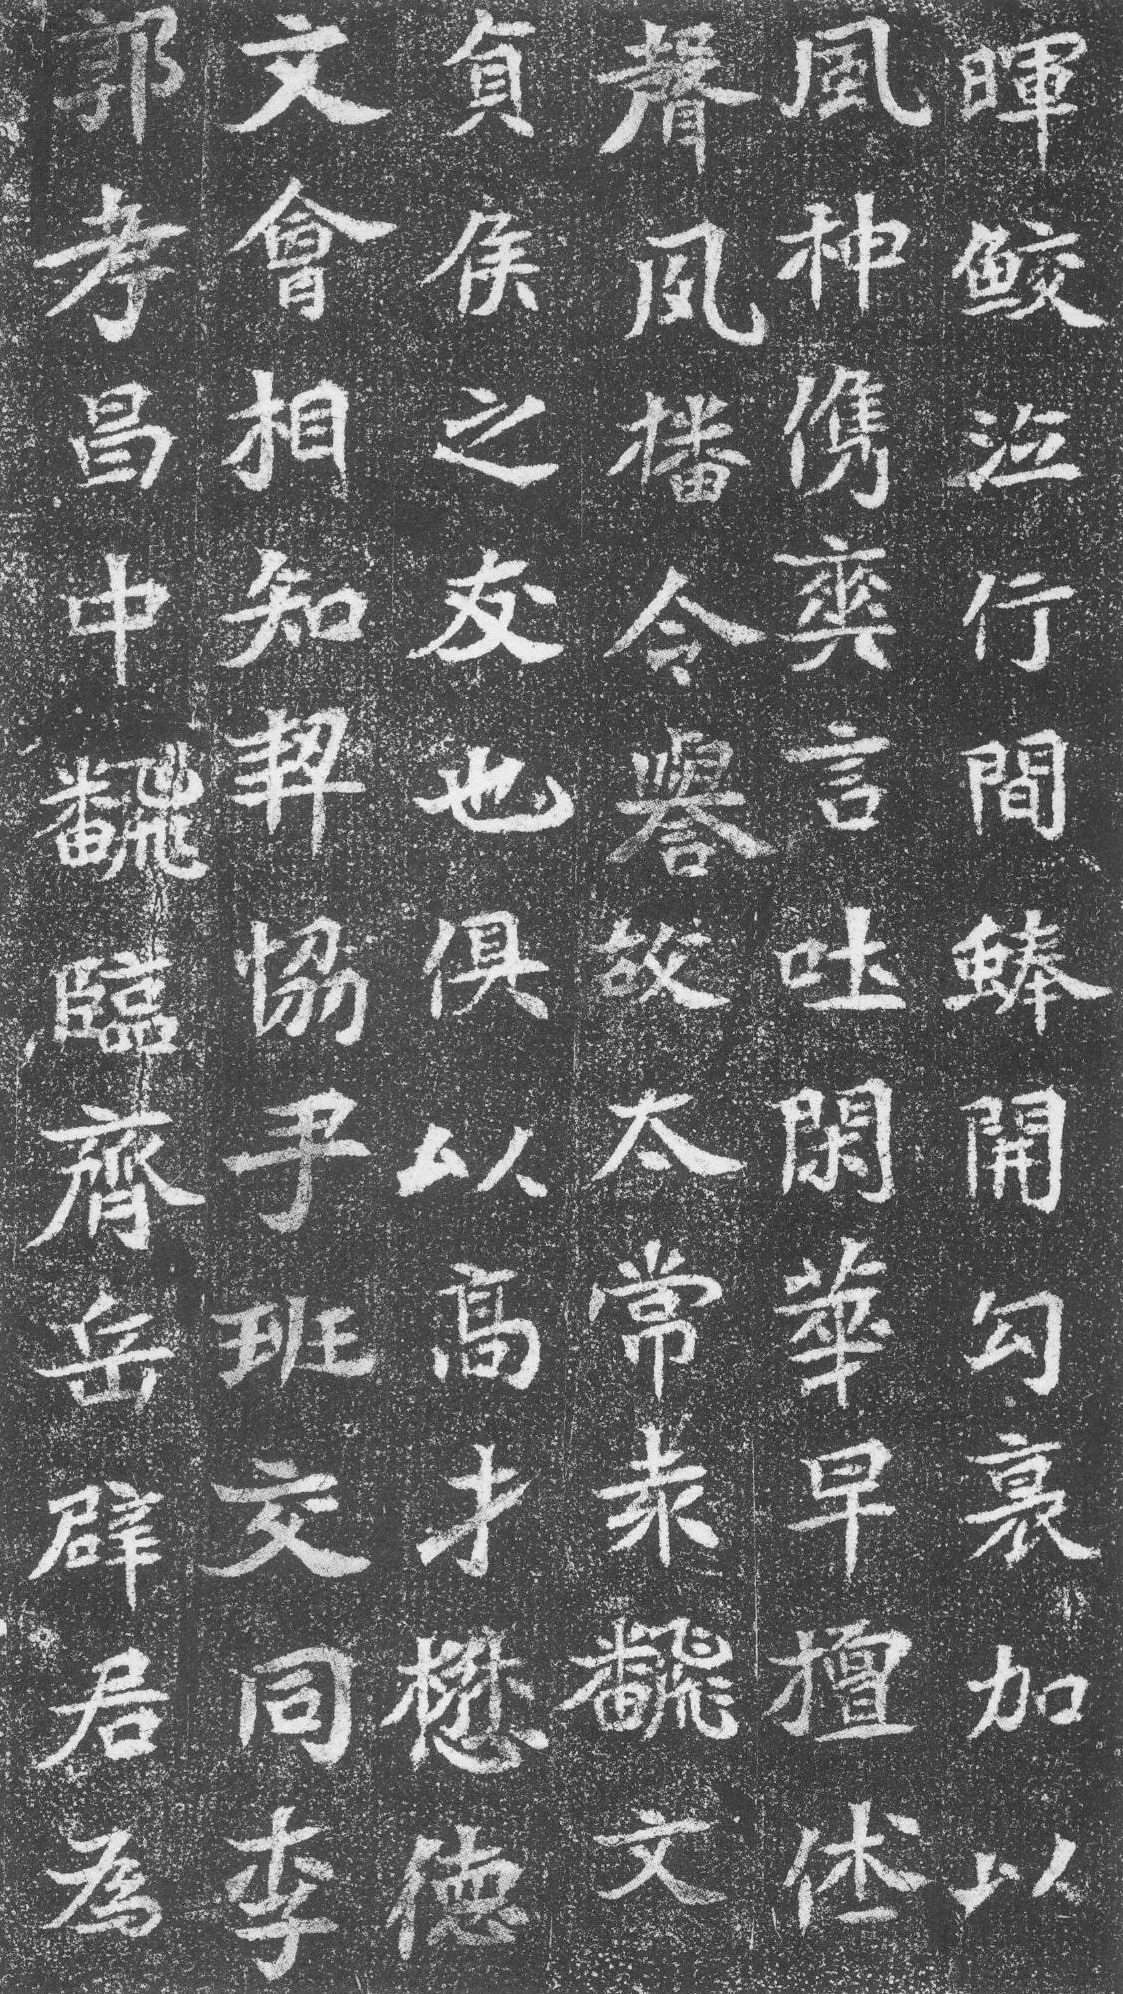 暉鮫泣行間開勾裏加以
風神儁奕言吐閑華早擅休
聲夙播令譽故太常袁翻文
貞侯之友也俱以高才懋德
文會相知契協尹班交同李
郭孝昌中翻臨齊岳辟君為